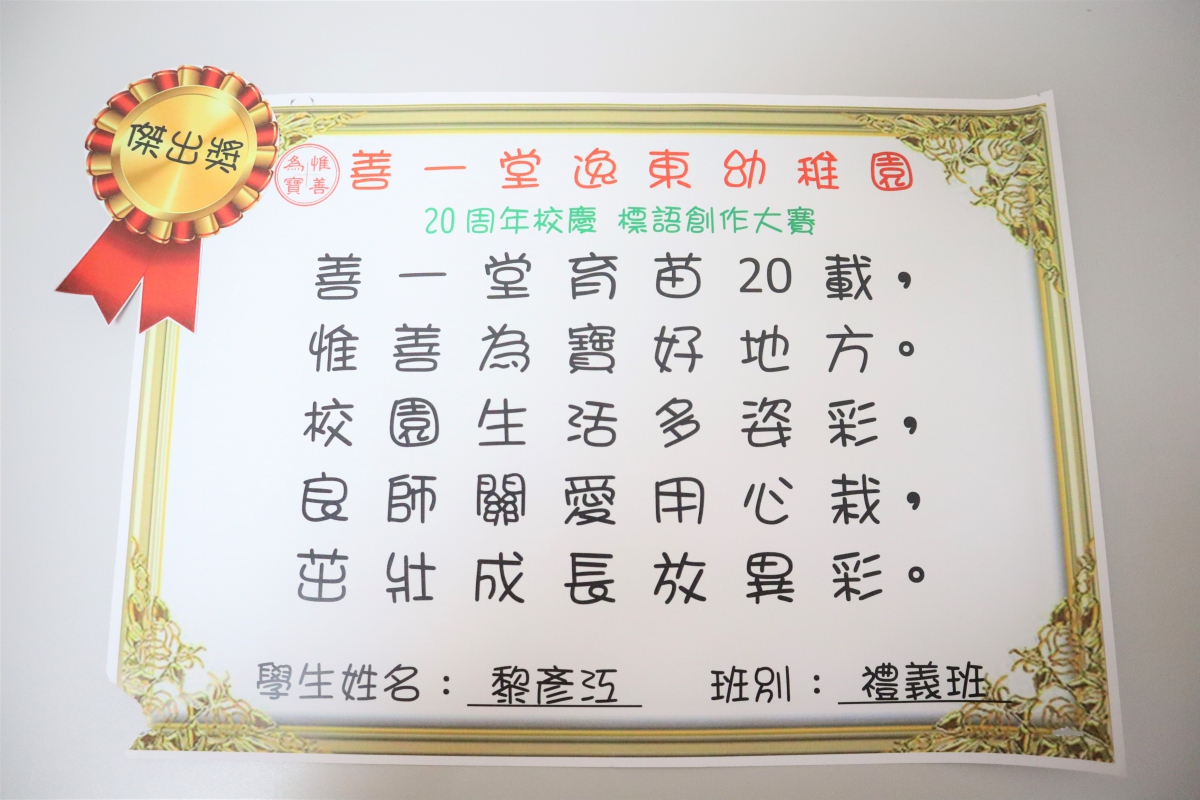 傑出獎
惟善為寶
善一堂逸東幼稚園
20周年校慶 標語創作大賽
善一堂育苗20載，
惟善為寶好地方。
校園生活多姿彩，
良師關愛用心栽，
茁壯成長放異彩。
學生姓名：黎彥江 班別：禮義班